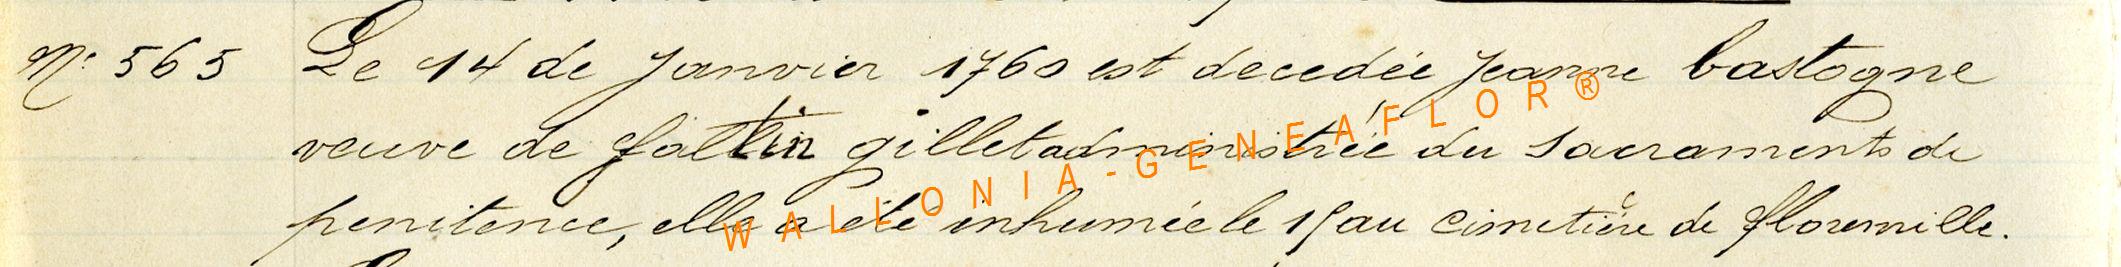 N.º 565 Le 14 de Janvier 1760 est decedée Jeanne bastogne
veuve de gillet administrée du sacraments de
penitence, elle a été inhumée le 15 au cimetière de florenville.
WALLONIA-GENEAFLOR®